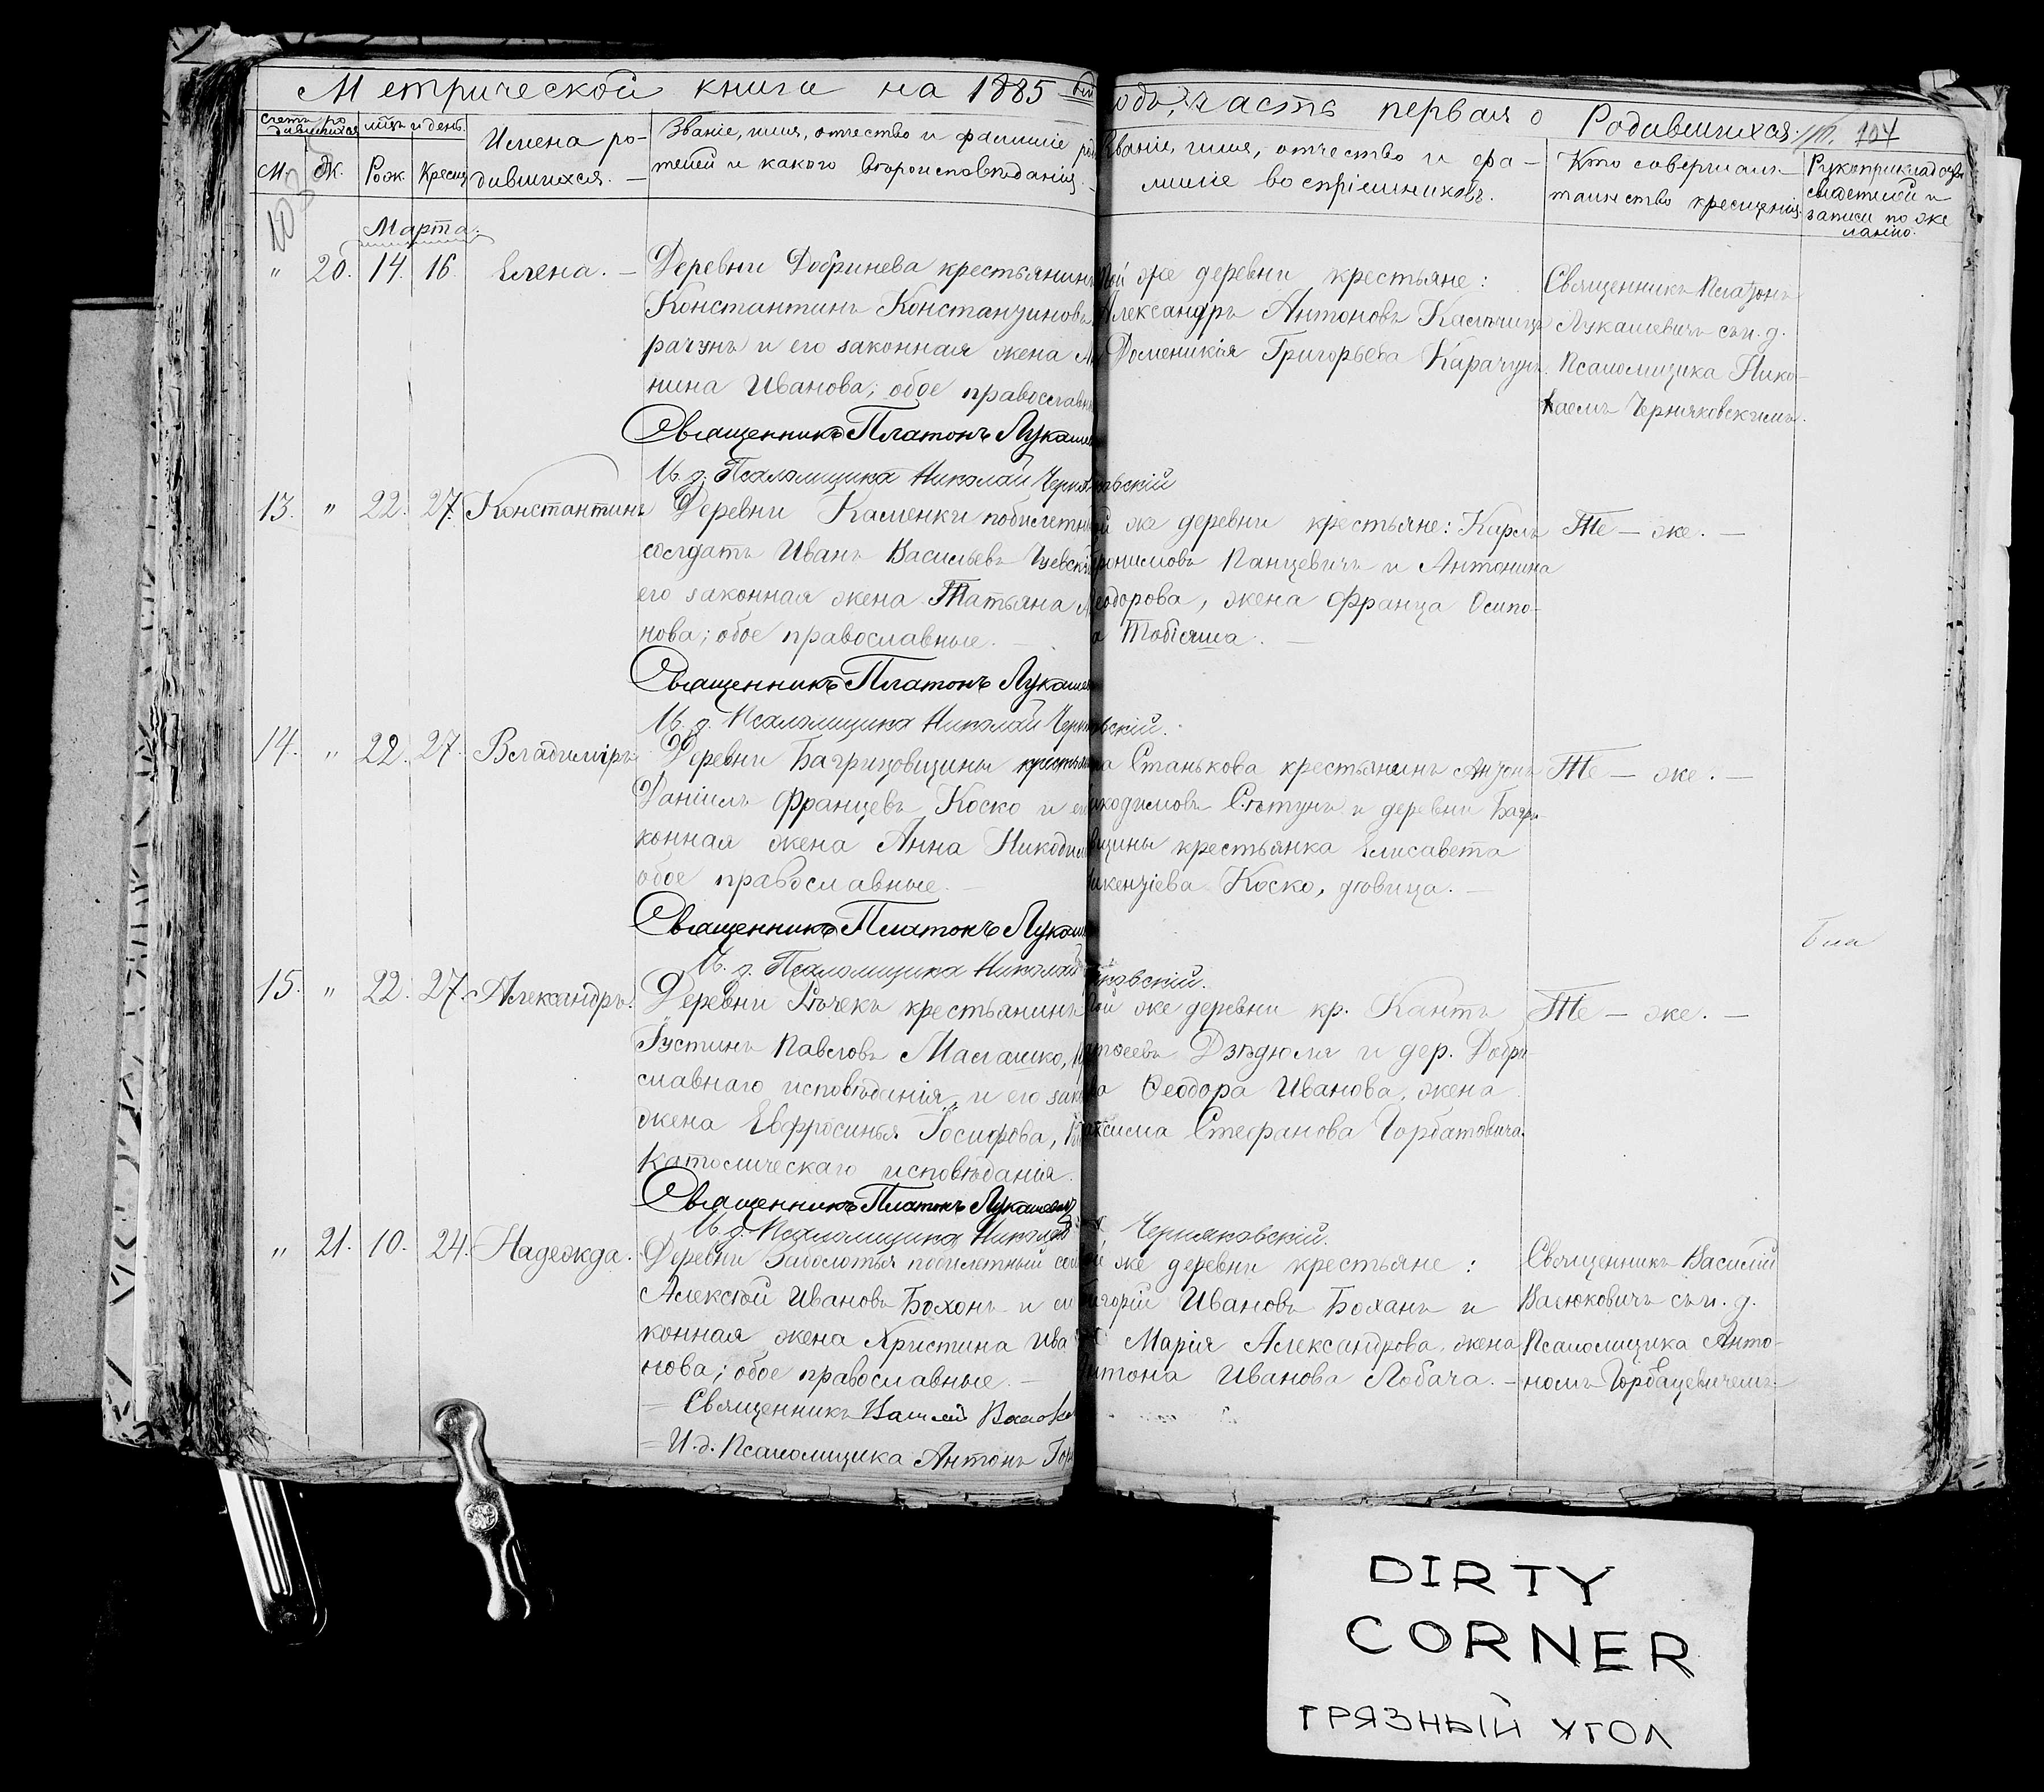 Метрической книги на 1885
часть первая о Родившихся. 104
Счетъ родившихся
мѣсяцъ и день.
М. Ж. Рож. Крещ.
Имена родившихся.
Званіе, имя, отчество и фамилія
и какого вѣроисповѣданія.
Званіе, имя, отчество и фамиліе воспріемниковъ.
Кто совершалъ
таинство крещенія.
Рукоприкладство
свидетелей
записи по желанію.
Марта.
" 20. 14. 16. Елена.
Деревни Добринева крестьянинъ
Константинъ Константиновъ
рачунъ и его законная жена
нина Иванова; обое православн
Священникъ Платонъ Лукаше
И. д. Псаломщика Николай Черняковскій
же деревни крестьяне:
Александръ Антоновъ
Доменикія Григорьева Карачунъ.
Священникъ Платонъ
Лукашевичъ съ и. д.
Псаломщика Нико-
лаемъ Черняковскимъ.
13. " 22. 27. Константинъ
Деревни Каменки побилетный
солдатъ Иванъ Васильевъ
его законная жена Татьяна
нова; обое православные.
Священникъ Платонъ Лукаше
И. д. Псаломщика Николай Черняковскій.
же деревни крестьяне: Карлъ
Панцевичъ и Антонина
Ѳеодорова, жена Франца Осипо-
а Тобіяша.
Тѣ - же. -
14. " 22. 27. Владиміръ
Деревни Багрицовщины крестьян
Даніилъ Францевъ Коско и е
конная жена Анна Никодим
обое православные.
Священникъ Платонъ Лукаш
И. д. Псаломщика Николай Черняковскій.
Станькова крестьянинъ Антонъ
Никодимовъ Сѣтунъ и деревни Багри-
вщины крестьянка Елисавета
Коско, дѣвица.
Тѣ - же. -
15. " 22. 27. Александръ.
Деревни Рѣчекъ крестьянинъ
Іустинъ Павловъ Маглашко,
славнаго исповѣданія, и его зак
жена Евфросинья Іосифова,
Католическаго исповѣданія.
Священникъ Платонъ Лукашевичъ
И. д. Псаломщика Николай Черняковскій.
же деревни кр.
Дзѣдюля и дер. Добри
Ѳеодора Иванова, жена
Максима Стефанова Горбатовича.
Тѣ - же. -
" 21. 10. 24. Надежда.
Деревни Заболотья побилетный со
Алексѣй Ивановъ Боханъ и е
конная жена Христина Ива
нова; обое православные.
Священникъ Василій
И. д. Псаломщика Антонъ Гор
же деревни крестьяне:
Григорій Ивановъ Боханъ и
Марія Александрова, жена
Антона Иванова Лобача.
Священникъ Василій
съ и. д.
Псаломщика Анто-
номъ Горбацевичемъ.
DIRTY
CORNER
ГРЯЗНЫЙ УГОЛ